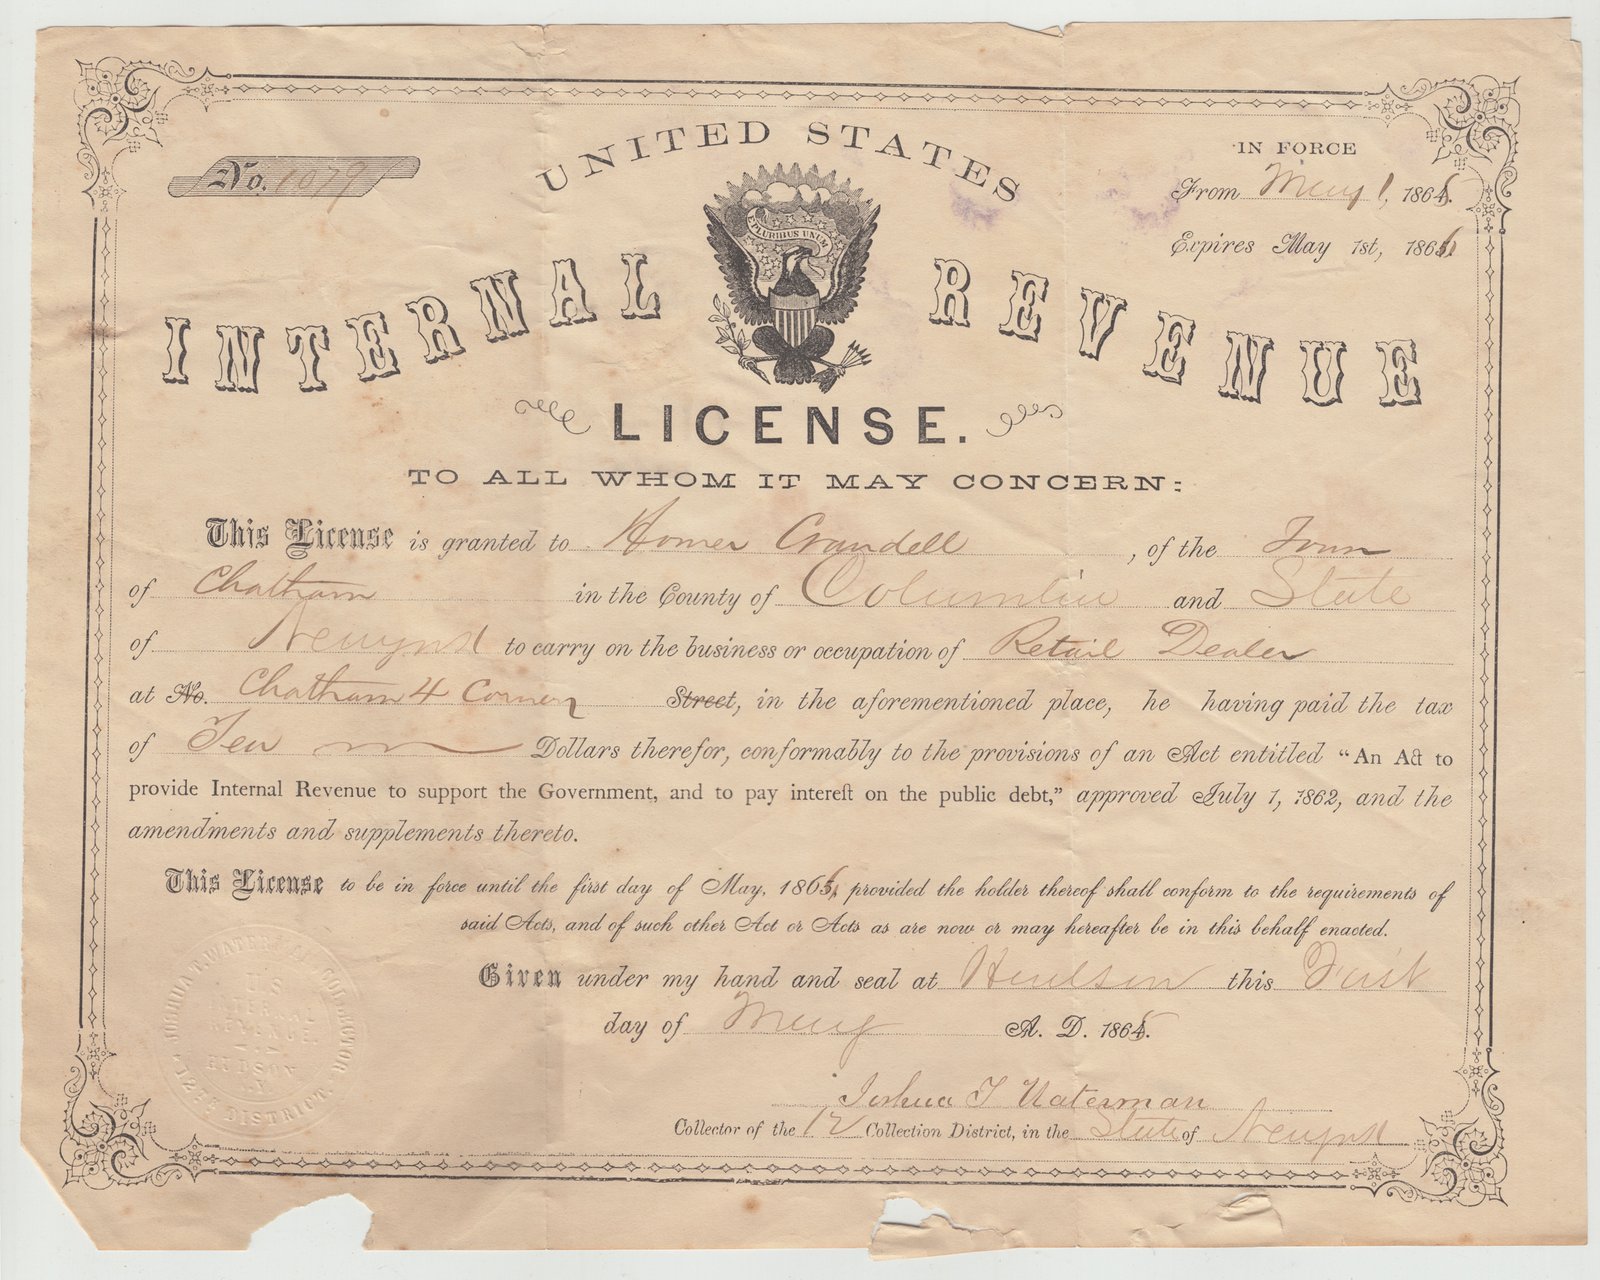 UNITED STATES
No. 1079
IN FORCE
From May 1, 1865.
E PLURIBUS UNUM
Expires May 1st, 1866
INTERNAL REVENUE
LICENSE.
TO ALL WHOM IT MAY CONCERN:
This License is granted to Homer Crandell, of the Town
of Chatham in the County of Columbia and State
of New York to carry on the business or occupation of Retail Dealer
at No. Chatham 4 Corners Street, in the aforementioned place, he having paid the tax
of Ten Dollars therefor, conformably to the provisions of an Act entitled "An Act to
provide Internal Revenue to support the Government, and to pay intereſt on the public debt," approved July 1, 1862, and the
amendments and supplements thereto.
This License to be in force until the first day of May, 1866, provided the holder thereof shall conform to the requirements of
said Acts, and of such other Act or Acts as are now or may hereafter be in this behalf enacted.
Given under my hand and seal at Hudson this First
day of May A. D. 1865.
Joshua T Waterman
Collector of the 12 Collection District, in the State of New York
JOSHUA T. WATERMAN COLLECTOR
U.S.
INTERNAL
REVENUE.
HUDSON
N.Y.
12TH DISTRICT.